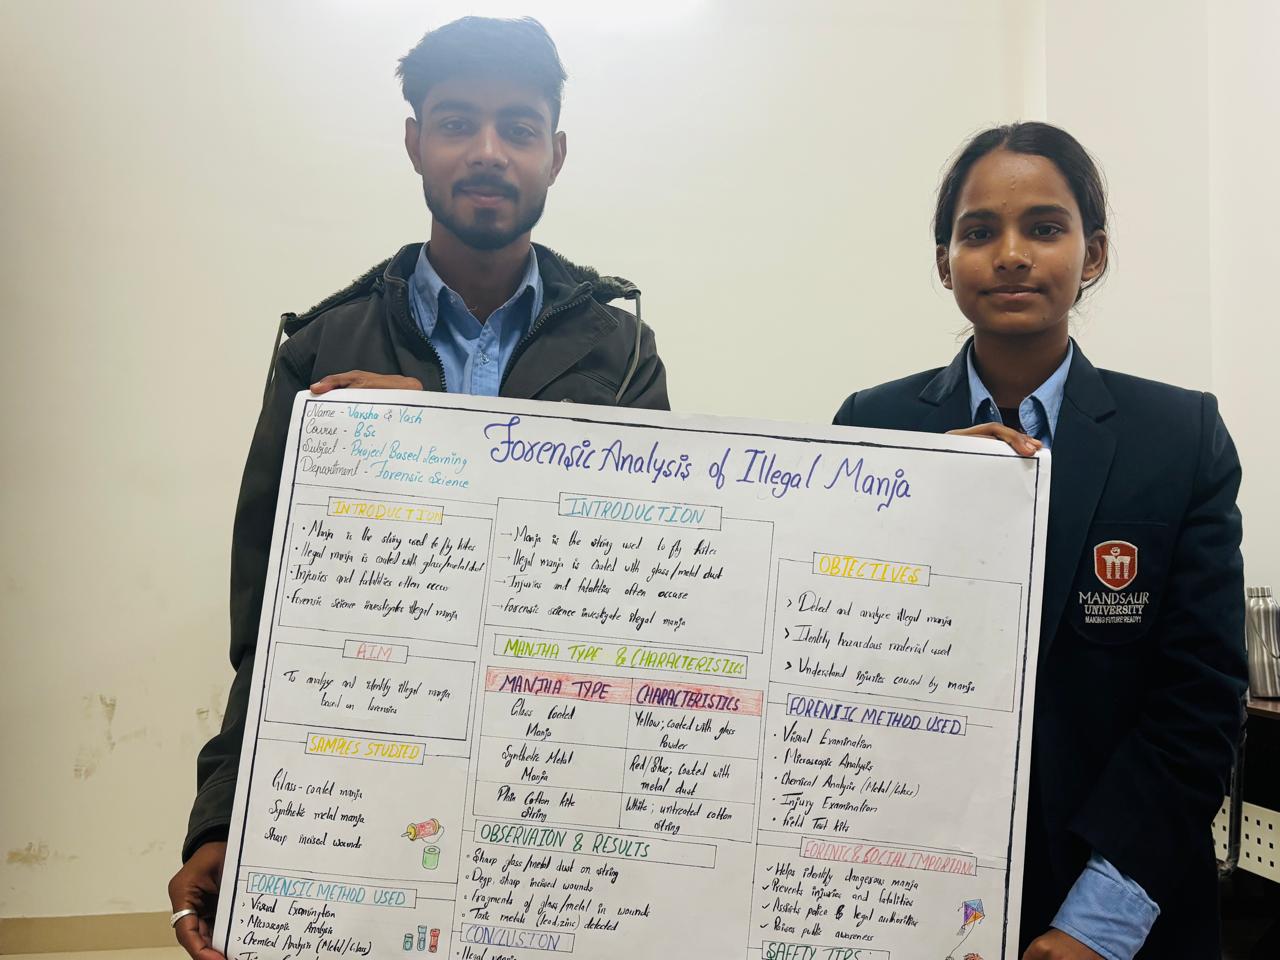 Name - Varsha & Yash
Course - BSc
Subject - Project Based Learning
Department - Forensic Science
Forensic Analysis of Illegal Manja
INTRODUCTION
• Manja is the string used to fly kites
• Illegal manja is coated with glass/metal dust
• Injuries and fatalities often occur
• Forensic science investigates illegal manja
AIM
To analyze and identify illegal manja
based on forensics
SAMPLES STUDIED
Glass-coated manja
Synthetic metal manja
Sharp incised wounds
FORENSIC METHOD USED
› Visual Examination
• Microscopic Analysis
• Chemical Analysis (Metal/Glass)
INTRODUCTION
→ Manja is the string used to fly kites
→ Illegal manja is coated with glass/metal dust
→ Injuries and fatalities often occure
→ Forensic science investigate illegal manja
MANJHA TYPE & CHARACTERISTICS
MANJHA TYPE CHARACTERISTICS
Glass Coated Yellow; coated with glass
Manja Powder
Synthetic Metal Red/Blue; Coated with
Manja metal dust
Plain Cotton kite White; untreated cotton
String string
OBSERVAION & RESULTS
• Sharp glass/metal dust on string
• Deep, sharp incised wounds
• Fragments of glass/metal in wounds
• Toxic metals (lead, zinc) detected
CONCLUSION
• Illegal manja
OBJECTIVES
› Detect and analyze illegal manja
› Identify hazardous material used
› Understand injuries caused by manja
FORENSIC METHOD USED
• Visual Examination
• Microscopic Analysis
• Chemical Analysis (Metal/Glass)
• Injury Examination
• Field Test kits
FORENIC & SOCIAL IMPORTANC
✓ Helps identify dangerous manja
✓ Prevents injuries and fatalities
✓ Assists police & legal authorities
✓ Raises public awareness
SAFETY TIPS:
MANDSAUR
UNIVERSITY
MAKING FUTURE READY!